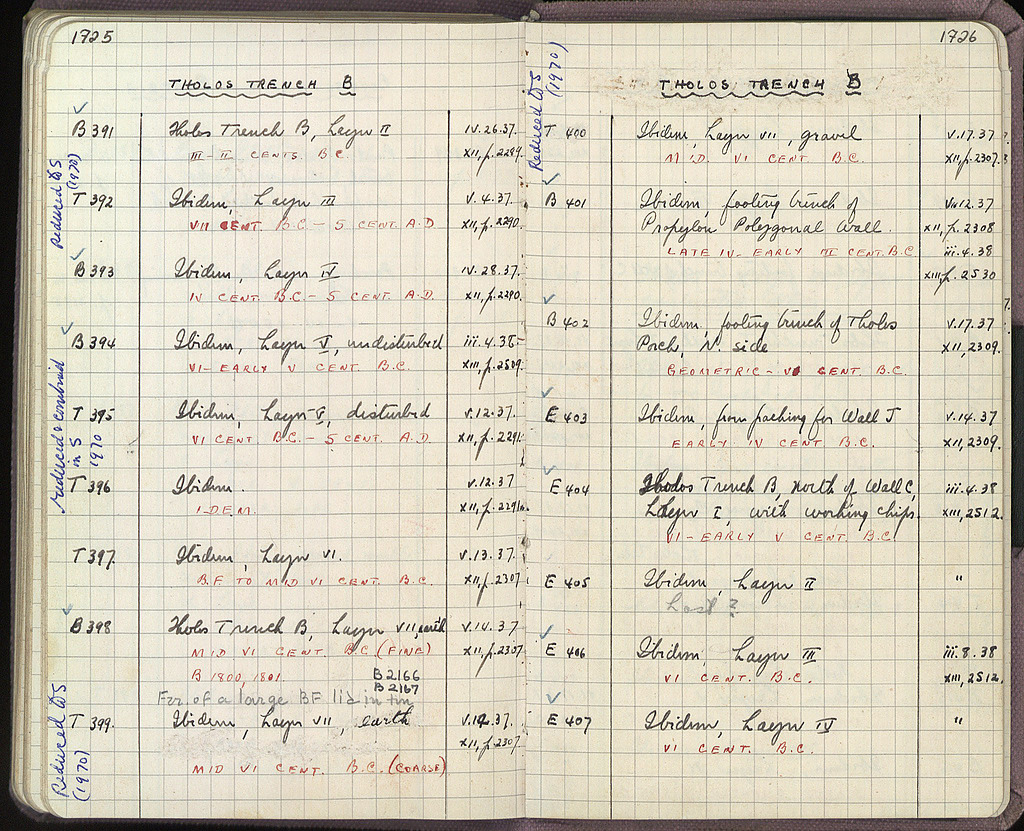 1725
THOLOS TRENCH B
B 391 Tholos Trench B, Layer II IV.26.37.
III–II CENTS. B.C. XII, p. 2289.
Reduced DS (1970)
T 392 Ibidem, Layer III V.4.37.
VII CENT. B.C. – 5 CENT. A.D. XII, p. 2290.
B 393 Ibidem, Layer IV IV.28.37.
IV CENT. B.C. – 5 CENT. A.D. XII, p. 2290.
B 394 Ibidem, Layer V, undisturbed iii.4.38
VI – EARLY V CENT. B.C. XIII, p. 2509.
reduced & combined in S 1970
T 395 Ibidem, Layer V, disturbed V.12.37.
VI CENT B.C. – 5 CENT. A.D. XII, p. 2291.
T 396 Ibidem. V.12.37
IDEM. XII, p. 2291
T 397. Ibidem, Layer VI. V.13.37.
B.F. TO MID VI CENT. B.C. XII, p. 2307
B 398 Tholos Trench B, Layer VII, earth V.14.37
MID VI CENT. B.C. (FINE) XII, p. 2307
B 1800, 1801. B 2166
B 2167
Fr. of a large BF lid in tin
Reduced DS (1970)
T 399. Ibidem, Layer VII, earth V.12.37.
XII, p. 2307
MID VI CENT. B.C. (COARSE)
1726
THOLOS TRENCH B
Reduced DS (1970)
T 400 Ibidem, Layer VII, gravel V.17.37
MID. VI CENT. B.C. XII, p. 2307.
B 401 Ibidem, footing trench of V.12.37
Propylon Polygonal Wall. XII, p. 2308
LATE IV – EARLY III CENT. B.C. iii.4.38
XIII, p. 2530
B 402 Ibidem, footing trench of Tholos V.17.37
Porch, N. side XII, 2309.
GEOMETRIC – VI CENT. B.C.
E 403 Ibidem, from packing for Wall J V.14.37
EARLY IV CENT. B.C. XII, 2309.
E 404 Tholos Trench B, north of Wall C, iii.4.38
Layer I, with working chips. XIII, 2512.
VI – EARLY V CENT. B.C.
E 405 Ibidem, Layer II "
Lost?
E 406 Ibidem, Layer III iii.8.38
VI CENT. B.C. XIII, 2512.
E 407 Ibidem, Layer IV "
VI CENT. B.C.